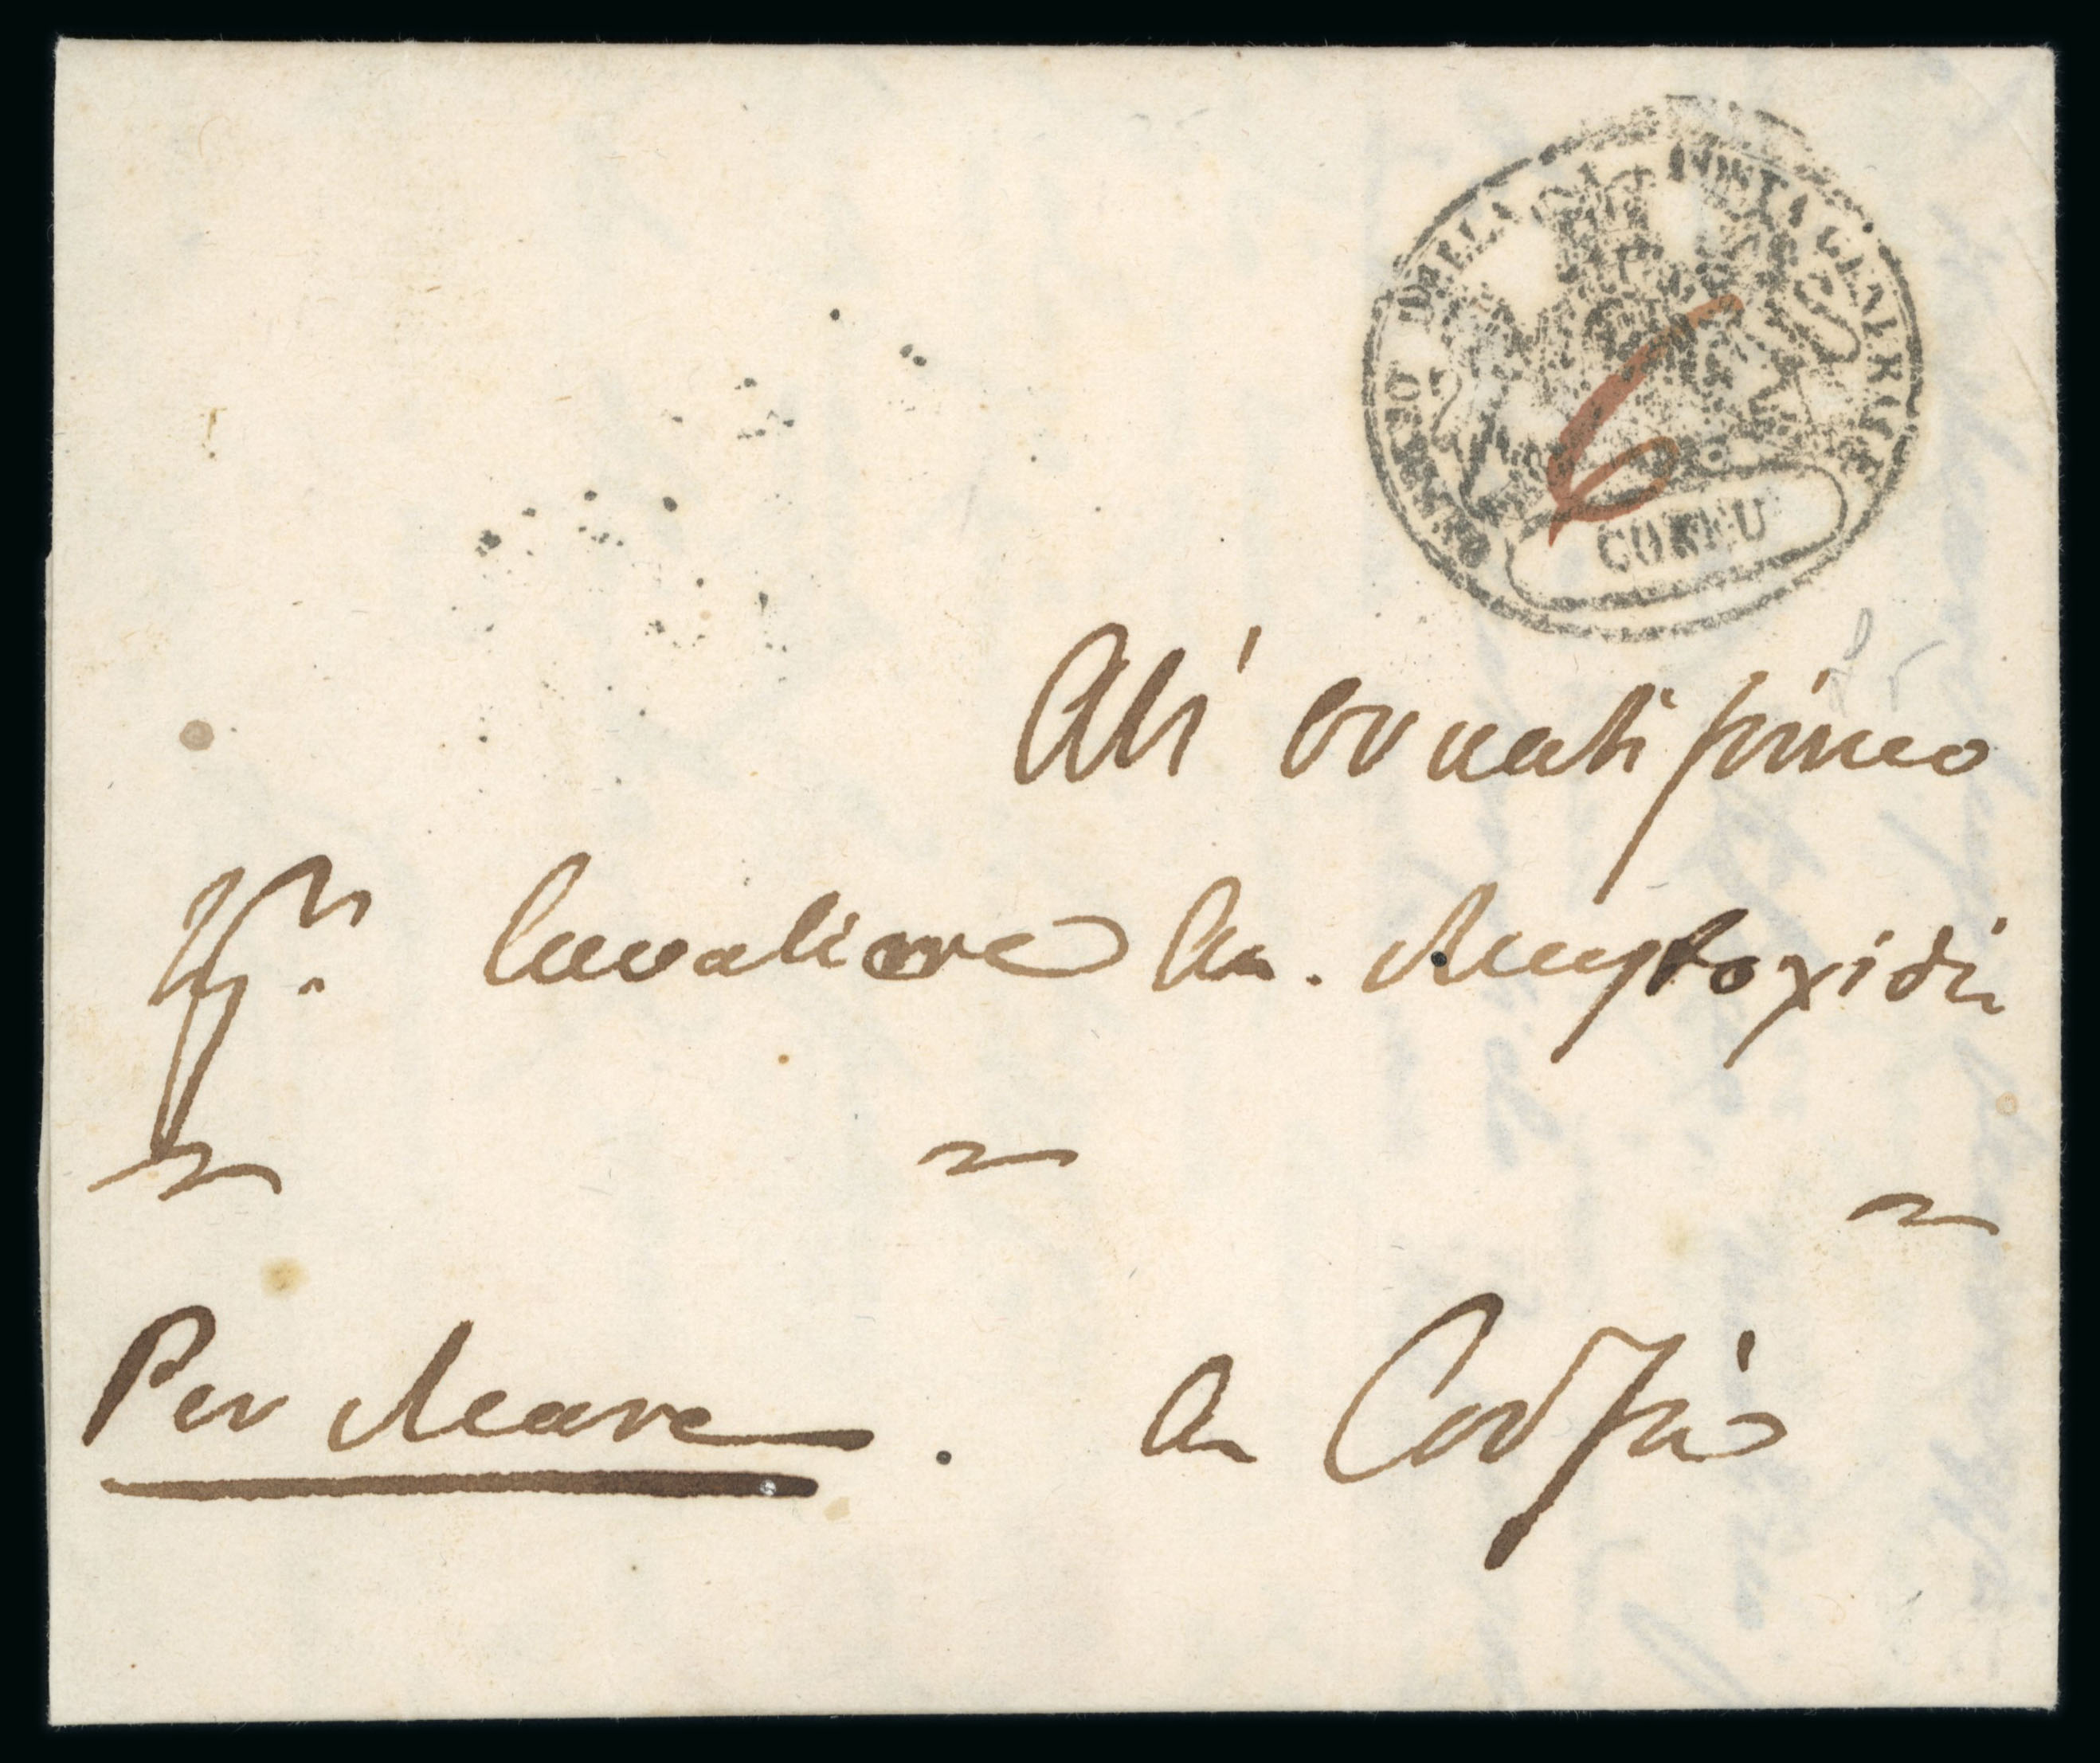 OFFIZIO DELLA POSTA GENERALE
CORFU
6
All' ornatissimo
Sigr. Cavaliere A. Mustoxidi
Per Mare. a Corfù